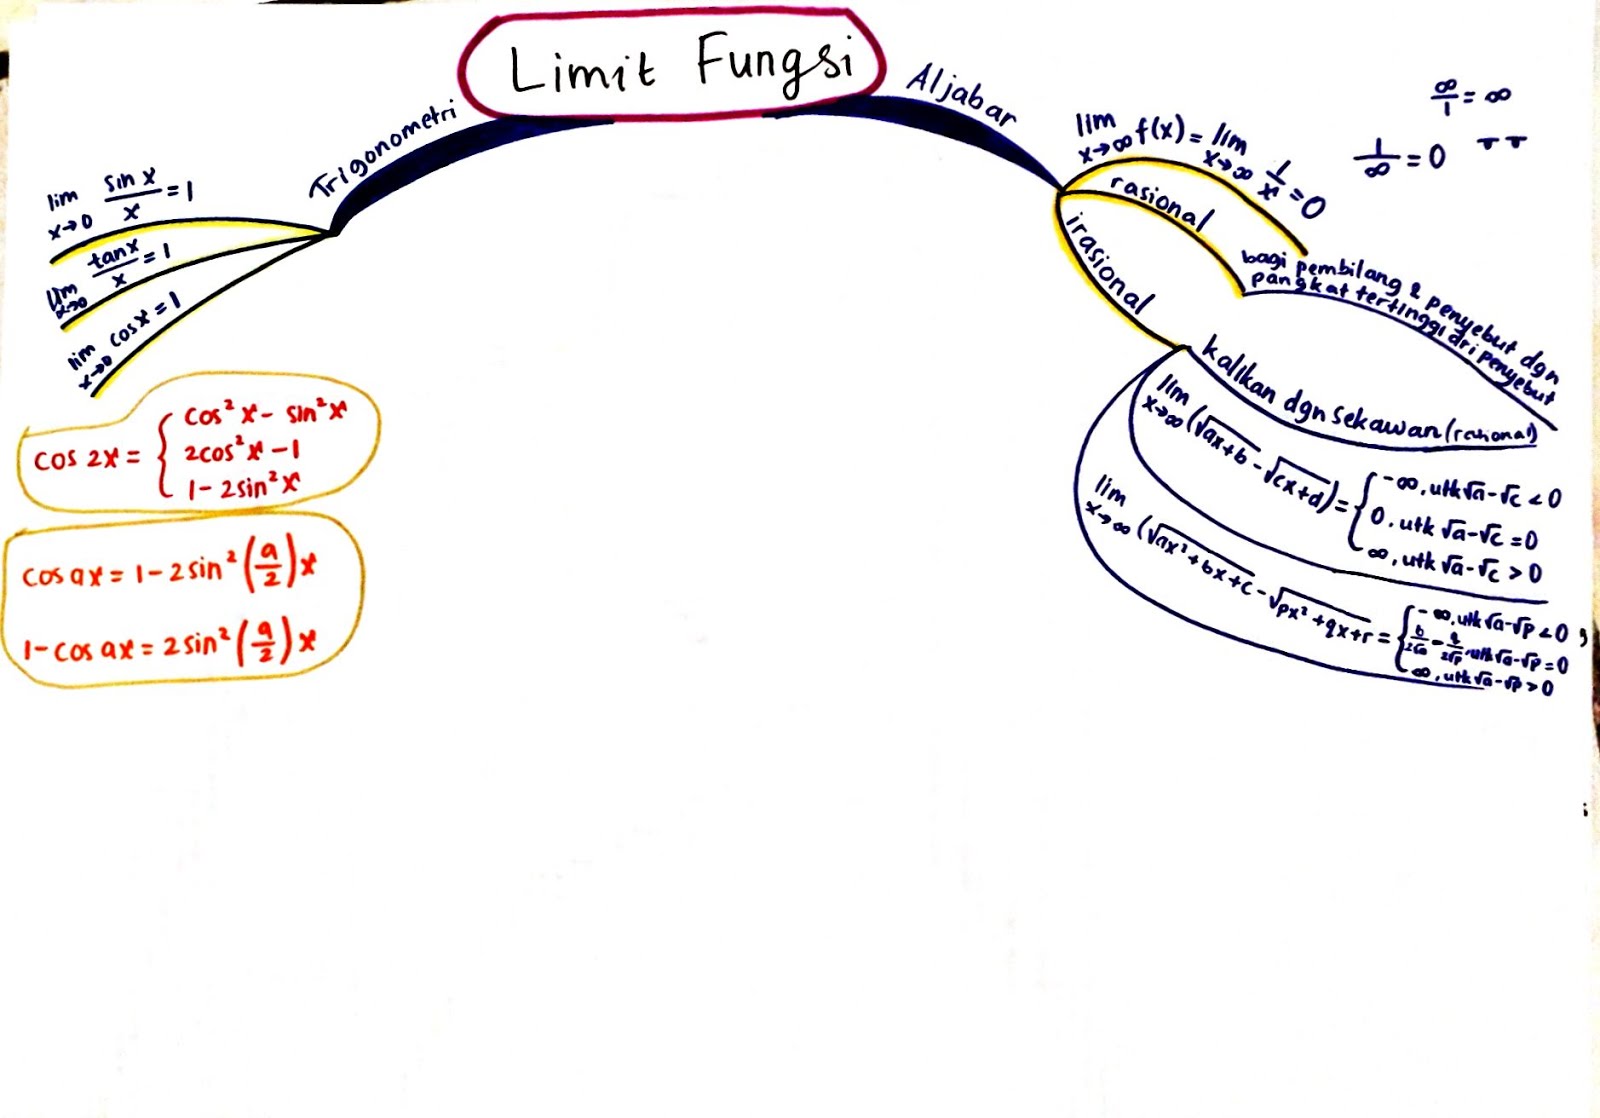 Limit Fungsi
Trigonometri
lim x→0 sin x / x = 1
lim x→0 tan x / x = 1
lim x→0 cos x = 1
cos 2x = { cos² x - sin² x
2cos² x - 1
1 - 2 sin² x
cos ax = 1 - 2 sin² (a/2) x
1 - cos ax = 2 sin² (a/2) x
Aljabar
lim x→∞ f(x) = lim x→∞ 1/x = 0
∞/1 = ∞
1/∞ = 0
rasional
bagi pembilang & penyebut dgn
pangkat tertinggi dri penyebut
irasional
kalikan dgn sekawan (rasional)
lim x→∞ (√ax+b - √cx+d) = { -∞, utk √a - √c < 0
0, utk √a - √c = 0
∞, utk √a - √c > 0
lim x→∞ (√ax²+bx+c - √px²+qx+r = { -∞, utk √a - √p < 0
b/2√a - q/2√p, utk √a - √p = 0
∞, utk √a - √p > 0